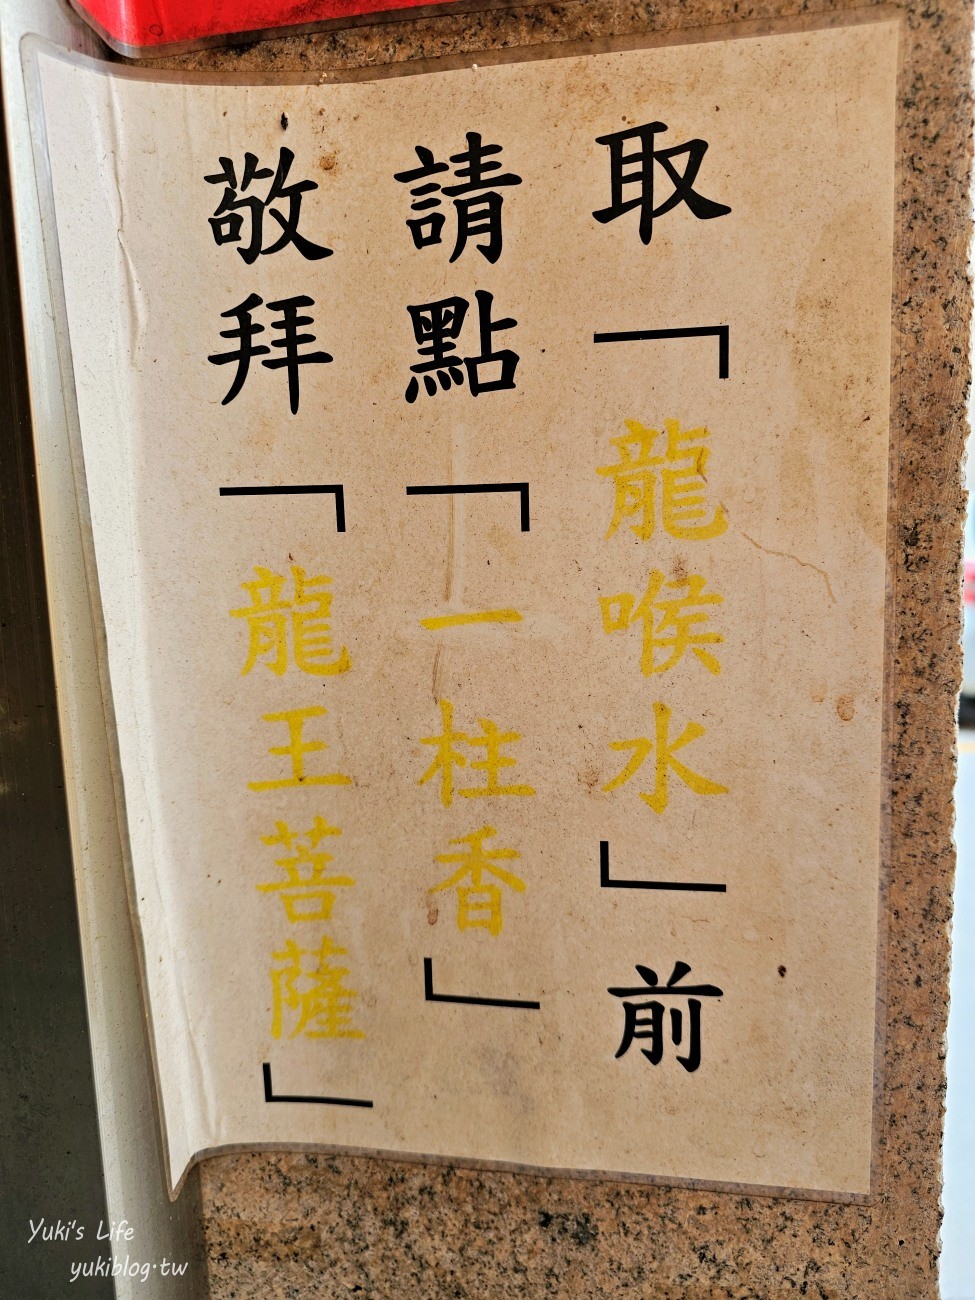 取「龍喉水」前
請點「一柱香」
敬拜「龍王菩薩」
Yuki's Life
yukiblog.tw